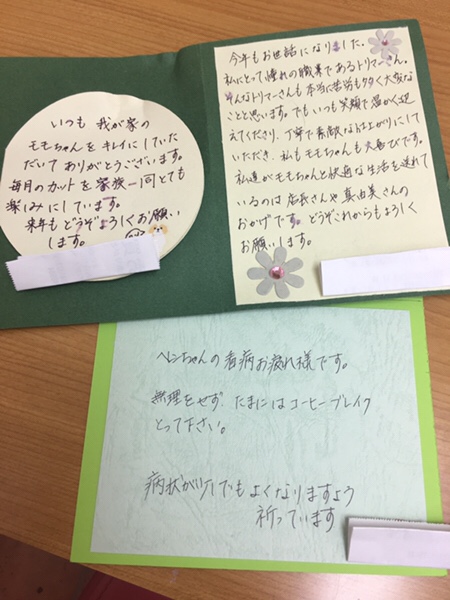 いつも 我が家の
モモちゃんを キレイにしていた
だいて ありがとうございます。
毎月のカットを 家族一同とても
楽しみにしています。
来年も どうぞ よろしくお願い
します。
今年もお世話になりました。
私にとって憧れの職業であるトリマーさん。
そんなトリマーさんも 本当は苦労も多く大変な
ことと思います。でもいつも笑顔で温かく迎
えてくださり、丁寧で素敵な仕上がりにして
いただき、私もモモちゃんも大喜びです。
私達がモモちゃんと快適な生活を送れて
いるのは 店長さんや 真由美さんの
おかげです。どうぞこれからもよろしく
お願いします。
ちゃんの 看病お疲れ様です。
無理をせず、たまにはコーヒーブレイク
とって下さい。
病状が少しでも よくなりますよう
祈っています